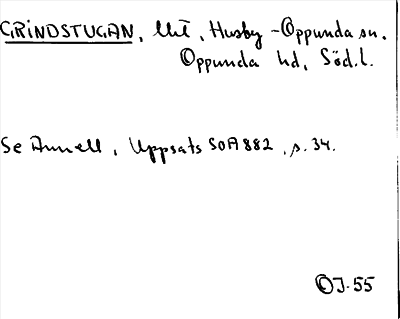 GRINDSTUGAN, Utl, Husby-Oppunda sn.
Oppunda hd, Söd.l.
Se Annell, Uppsats SOA 882, s. 34.
OJ-55